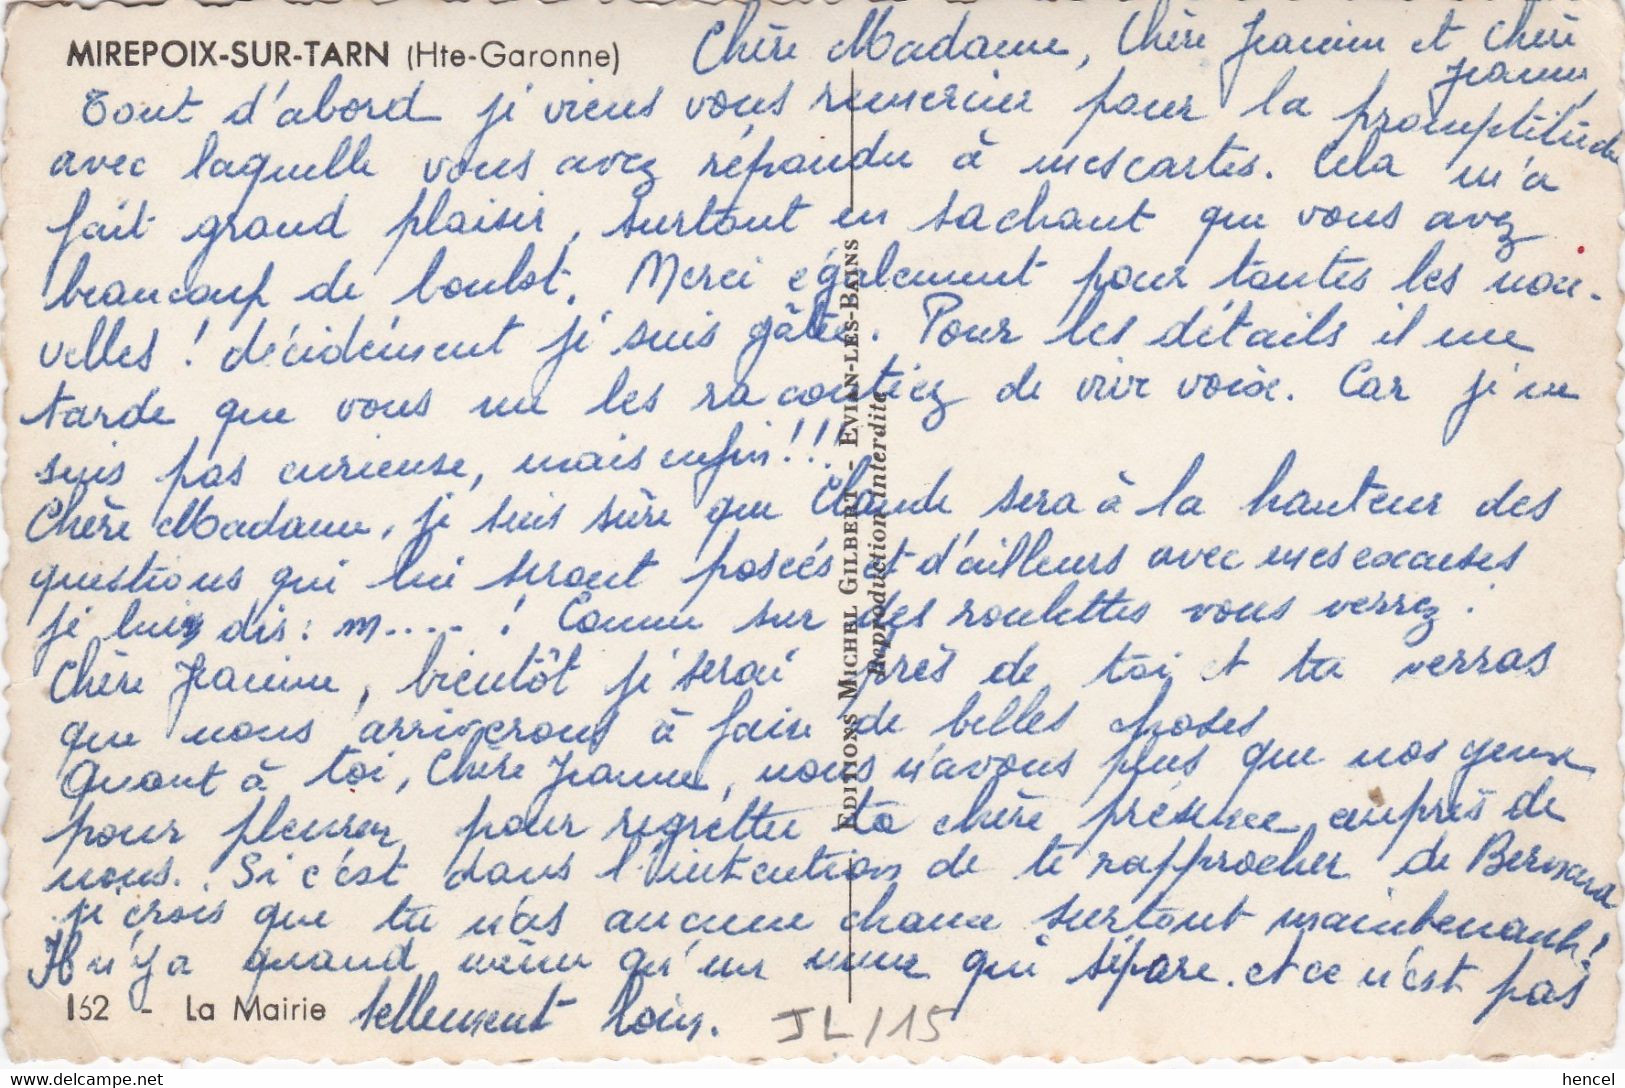 MIREPOIX-SUR-TARN (Hte-Garonne)
Chère Madame, Chère Jeannine et Chère
Jeanne,
Tout d'abord je viens vous remercier pour la promptitude
avec laquelle vous avez répondu à mes cartes. Cela m'a
fait grand plaisir, surtout en sachant que vous avez
beaucoup de boulot. Merci également pour toutes les nou-
velles ! décidément je suis gâtée. Pour les détails il me
tarde que vous me les racontiez de vive voix. Car je ne
suis pas curieuse, mais enfin!!!
Chère Madame, je suis sûre que Claude sera à la hauteur des
questions qui lui seront posées et d'ailleurs avec mes excuses
je lui dis : m..... ! Comme sur des roulettes vous verrez !
Chère Jeannine, bientôt je serai près de toi et tu verras
que nous arriverons à faire de belles choses
Quant à toi, Chère Jeanne, nous n'avons plus que nos yeux
pour pleurer pour regretter ta chère présence auprès de
nous. Si c'est dans l'intention de te rapprocher de Bernard
je crois que tu n'as aucune chance surtout maintenant !
Il n'y a quand même qu'un mur qui sépare. et ce n'est pas
tellement loin.
162 - La Mairie
JL/15
EDITIONS MICHEL GILBERT - EVIAN-LES-BAINS
Reproduction interdite
hencel